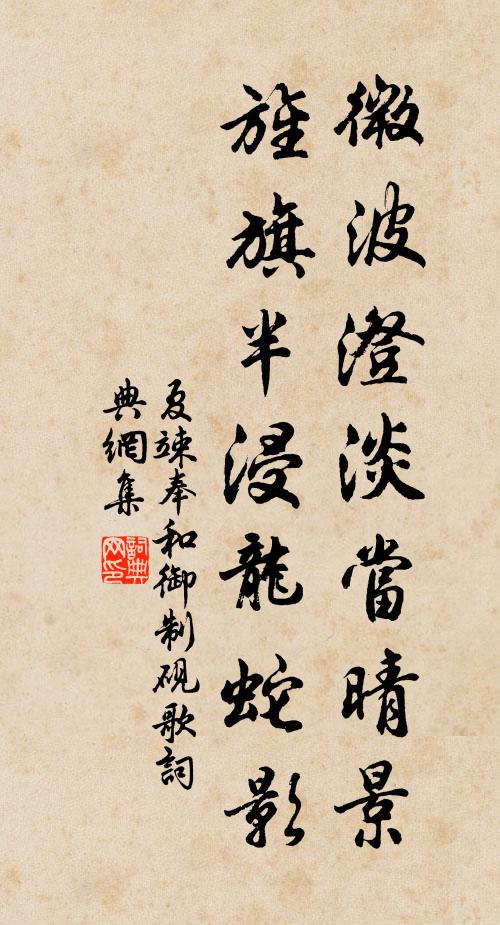 微波澄淡當晴景
旌旗半浸龍蛇影
夏竦奉和御制硯歌詞
典網集
詞典網印